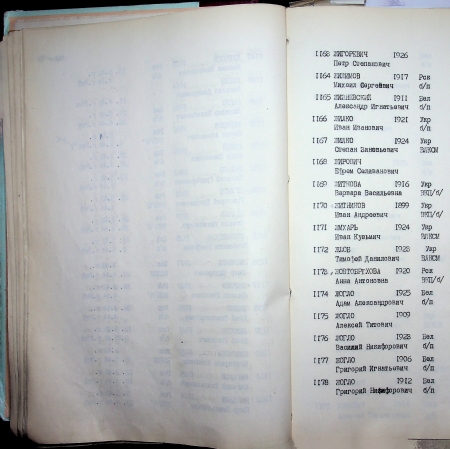 1163 ЖИГОРЕВИЧ 1926
Петр Степанович
1164 ЖИЛИМОВ 1917 Рск
Михаил Сергеевич б/п
1165 ЖИЛИНСКИЙ 1911 Бел
Александр Игнатьевич б/п
1166 ЖИЛКО 1921 Укр
Иван Иванович б/п
1167 ЖИЛКО 1924 Укр
Степан Зиновьевич ВЛКСМ
1168 ЖИРОВИЧ
Ефрем Селиванович
1169 ЖИТКОВА 1916 Укр
Варвара Васильевна ВКП/б/
1170 ЖИТНИКОВ 1899 Укр
Иван Андреевич ВКП/б/
1171 ЖМХАРЬ 1924 Укр
Иван Кузьмич ВЛКСМ
1172 1923 Укр
Тимофей Данилович ВЛКСМ
1173 ЖОВТОБРЮХОВА 1920 Рск
Анна Антоновна ВКП/б/
1174 ЖОГЛО 1925 Бел
Адам Александрович б/п
1175 ЖОГЛО 1909
Алексей Титович
1176 ЖОГЛО 1923 Бел
Василий Никифорович б/п
1177 ЖОГЛО 1906 Бел
Григорий Игнатьевич б/п
1178 ЖОГЛО 1912 Бел
Григорий Никифорович б/п